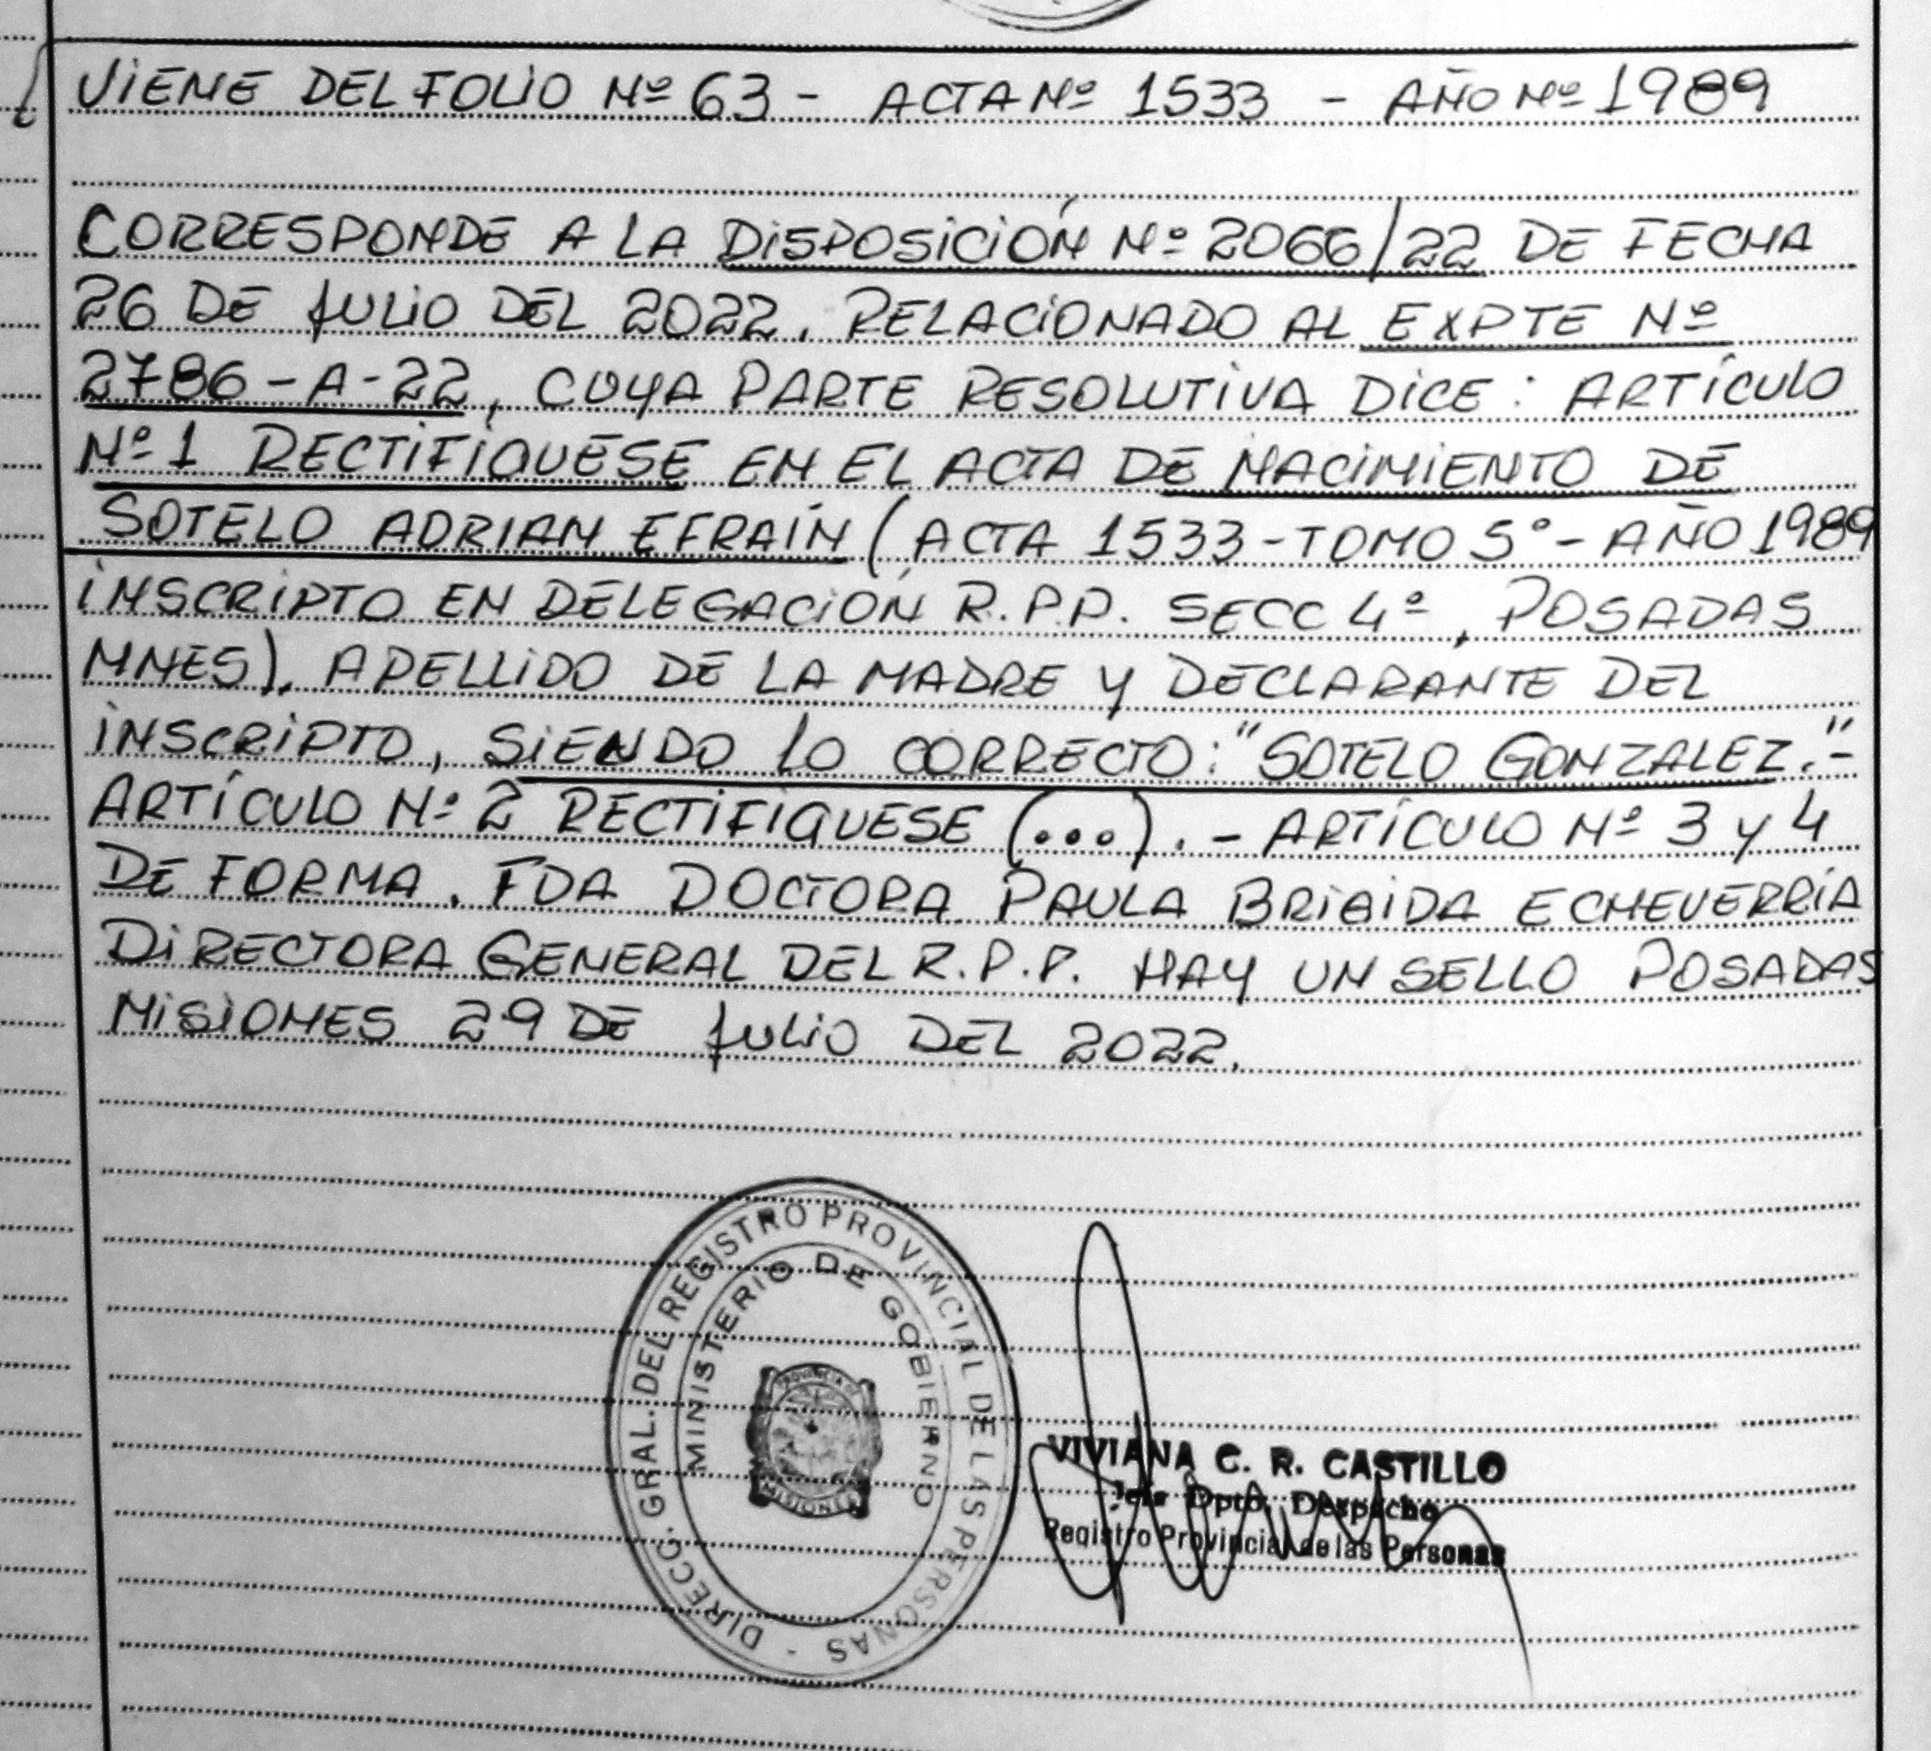 VIENE DEL FOLIO Nº 63 - ACTA Nº 1533 - AÑO Nº 1989
CORRESPONDE A LA DISPOSICIÓN Nº 2066/22 DE FECHA
26 DE JULIO DEL 2022. RELACIONADO AL EXPTE Nº
2786-A-22, CUYA PARTE RESOLUTIVA DICE: ARTÍCULO
Nº 1 RECTIFIQUESE EN EL ACTA DE NACIMIENTO DE
SOTELO ADRIAN EFRAÍN (ACTA 1533-TOMO 5º - AÑO 1989
INSCRIPTO EN DELEGACIÓN R.P.P. SECC 4º, POSADAS
MNES). APELLIDO DE LA MADRE Y DECLARANTE DEL
INSCRIPTO, SIENDO LO CORRECTO: "SOTELO GONZALEZ."-
ARTÍCULO Nº 2 RECTIFIQUESE (...). - ARTÍCULO Nº 3 Y 4
DE FORMA. FDA DOCTORA PAULA BRIGIDA ECHEVERRÍA
DIRECTORA GENERAL DEL R.P.P. HAY UN SELLO POSADAS
MISIONES 29 DE JULIO DEL 2022.
DIRECC. GRAL. DEL REGISTRO PROVINCIAL DE LAS PERSONAS -
MINISTERIO DE GOBIERNO
PROVINCIA DE
MISIONES
VIVIANA C. R. CASTILLO
Jefe Dpto. Despacho
Registro Provincial de las Personas